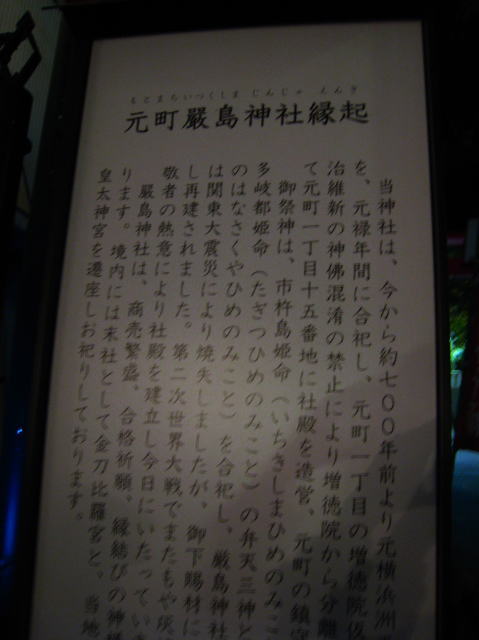 もとまちいつくしま じんじゃ えんぎ
元町嚴島神社縁起
当神社は、今から約七〇〇年前より元横浜洲
を、元禄年間に合祀し、元町一丁目の増徳院
治維新の神佛混淆の禁止により増徳院から分離
て元町一丁目十五番地に社殿を造営、元町の鎮守
御祭神は、市杵島姫命（いちきしまひめのみこ
多岐都姫命（たぎつひめのみこと）の弁天三神と
のはなさくやひめのみこと）を合祀し、厳島神社
は関東大震災により焼失しましたが、御下賜材に
し再建されました。第二次世界大戦でまたもや灰
敬者の熱意により社殿を建立し今日にいたってい
嚴島神社は、商売繁盛、合格祈願、縁結びの神様
ります。境内には末社として金刀比羅宮と、当地
皇太神宮を遷座しお祀りしております。